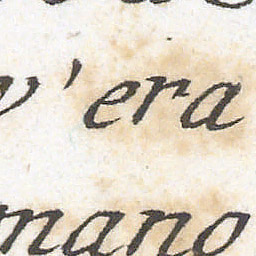 v'era
mano